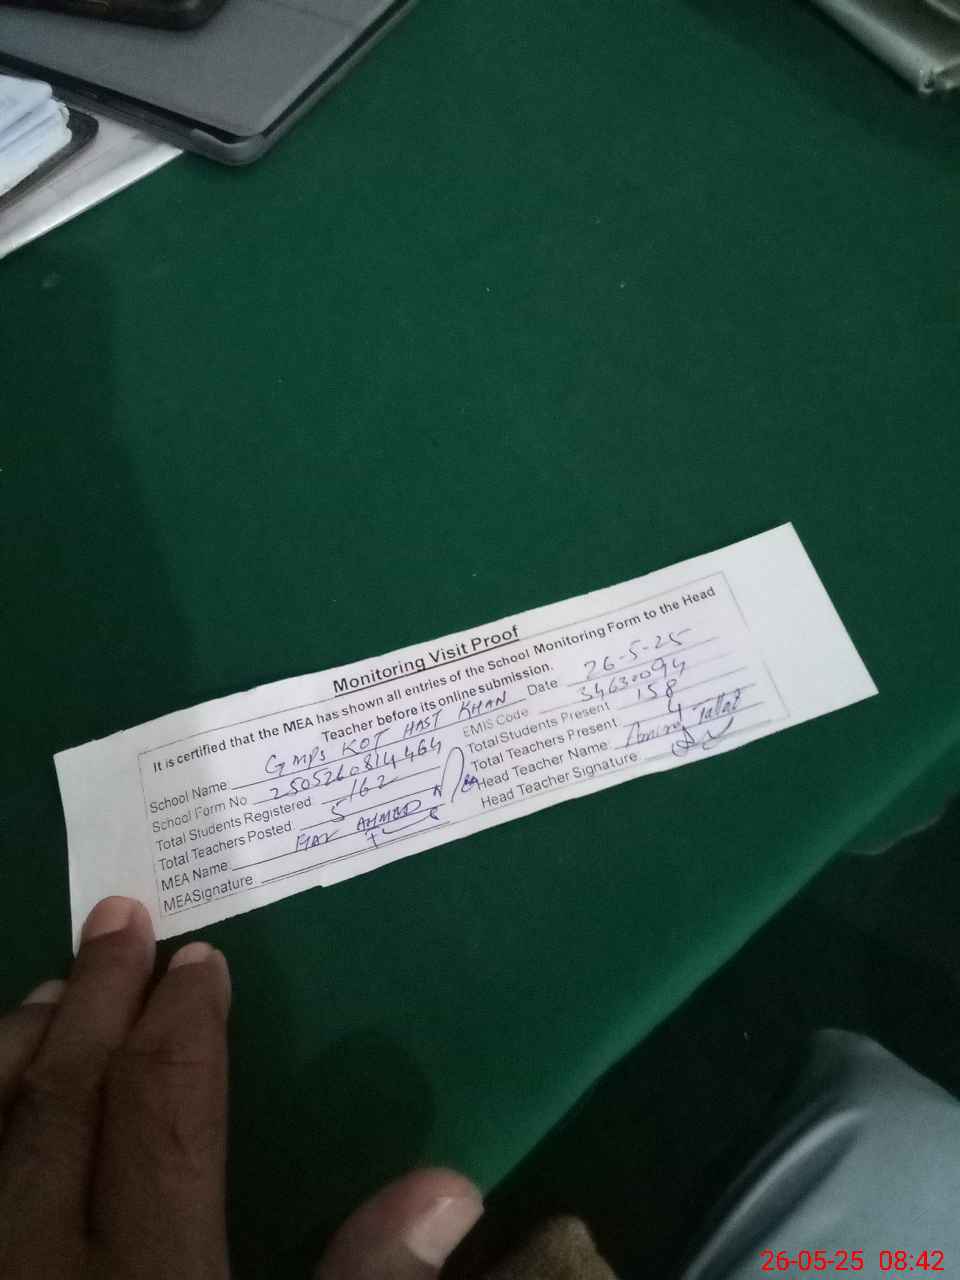 Monitoring Visit Proof
It is certified that the MEA has shown all entries of the School Monitoring Form to the Head
Teacher before its online submission.
School Name GMPS KOT HAST KHAN Date 26-5-25
School Form No 2505260814464 EMIS Code 34630094
Total Students Registered 162 Total Students Present 158
Total Teachers Posted 5 Total Teachers Present 4
MEA Name AHMED Head Teacher Name: Tallat
MEASignature Head Teacher Signature:
26-05-25 08:42